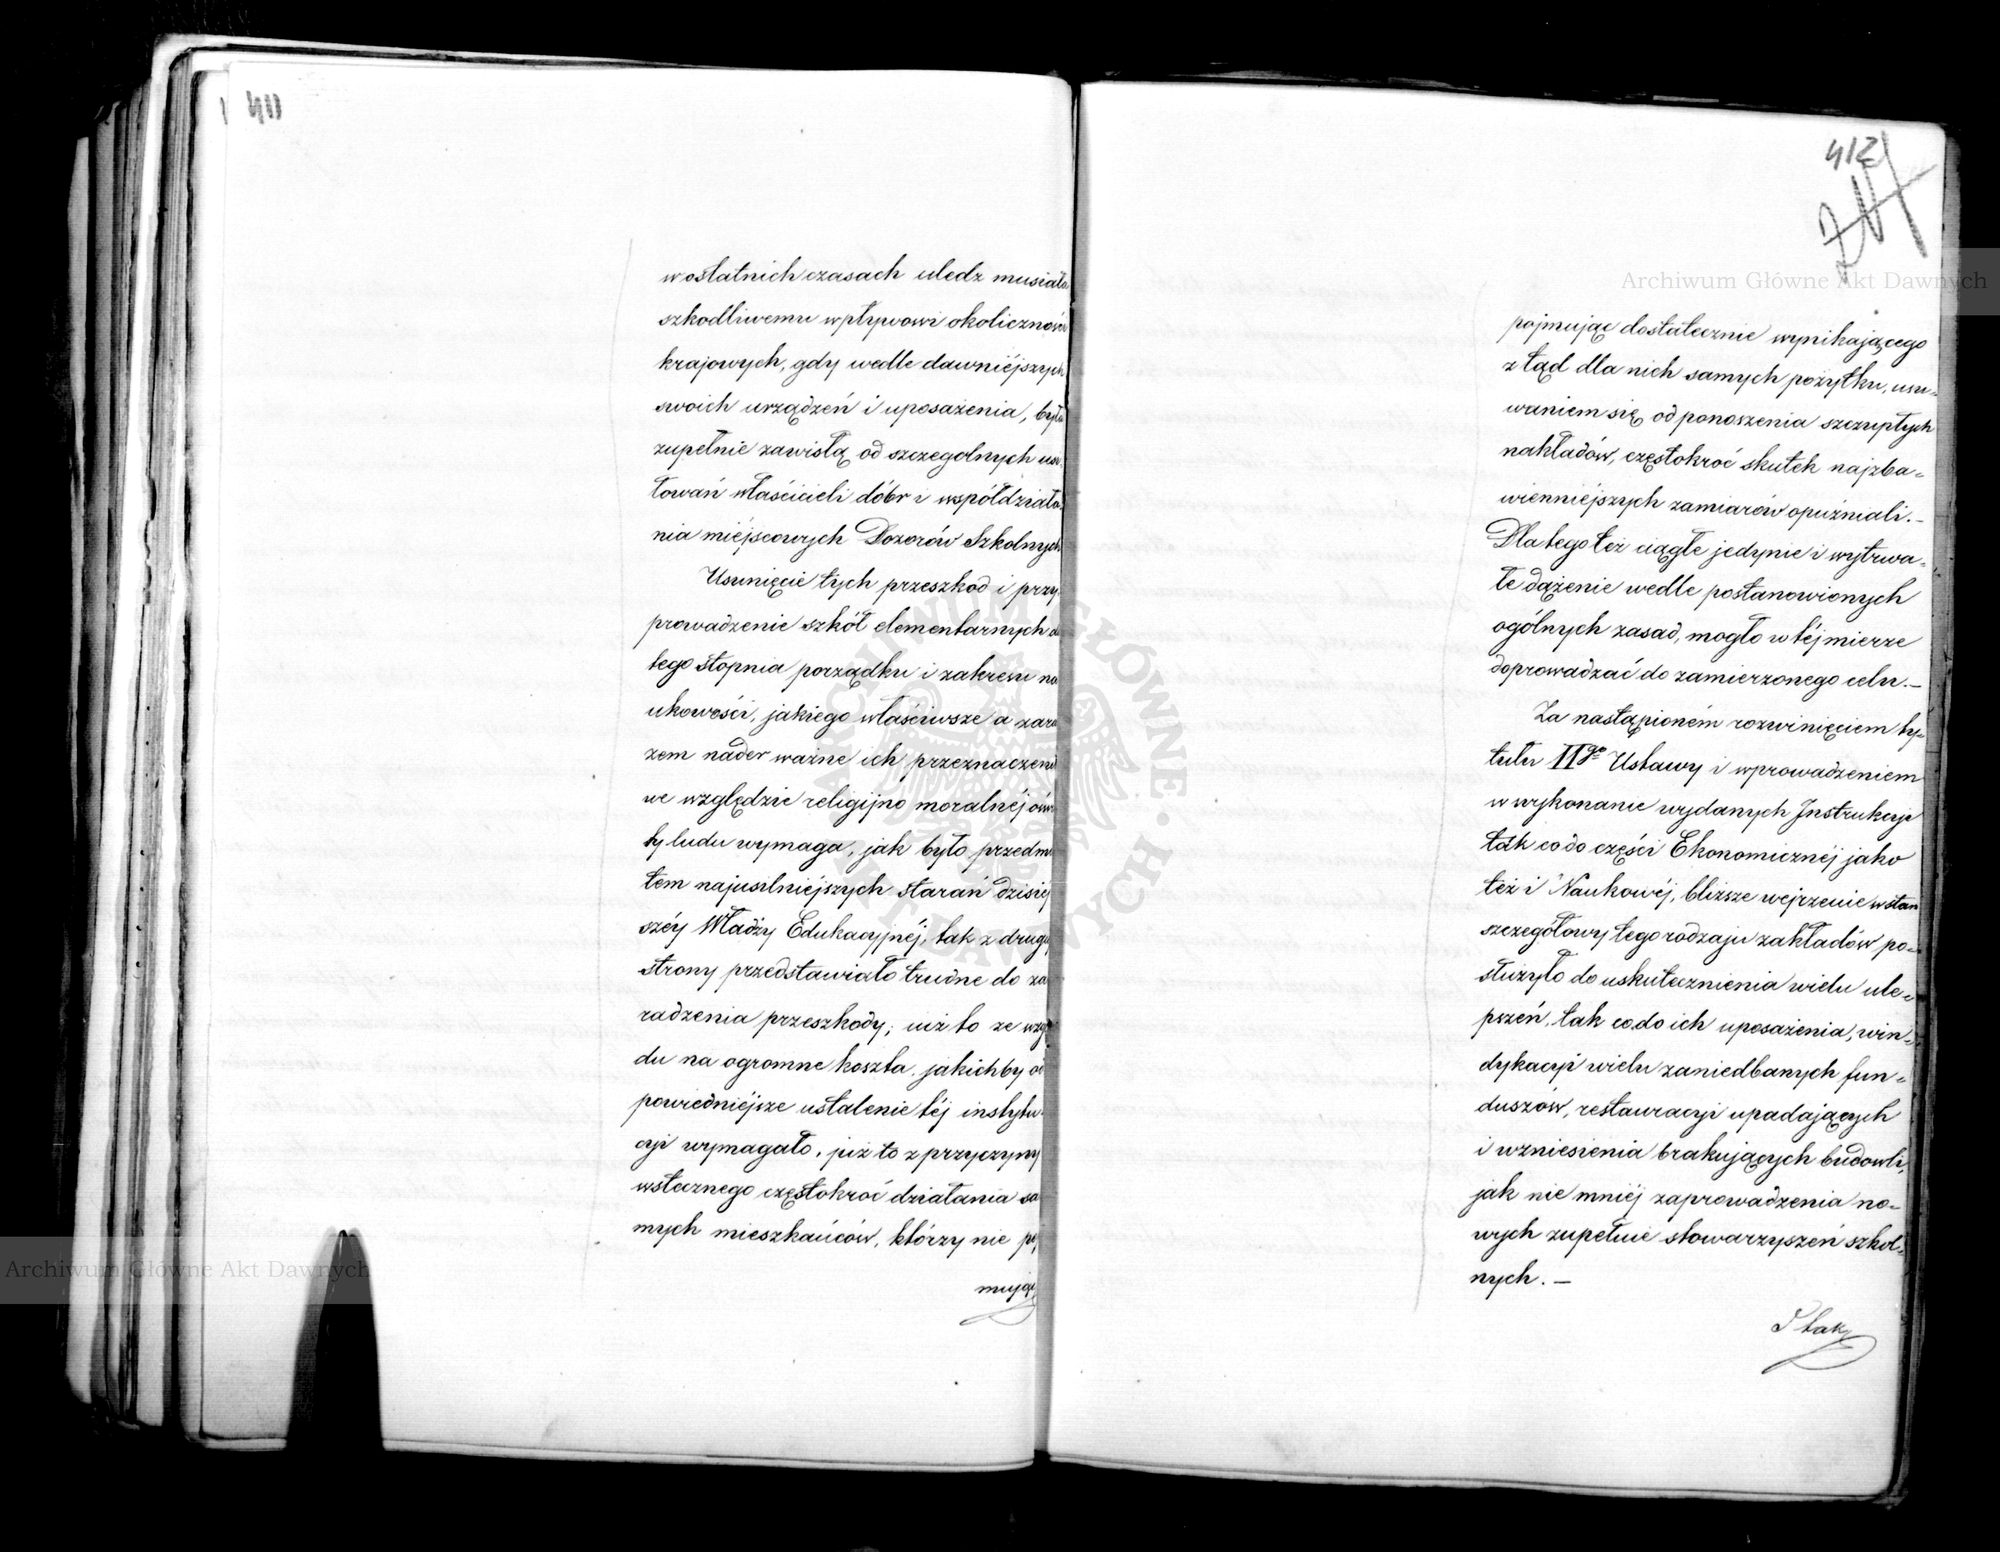 w ostatnich czasach uledz musiała
szkodliwemu wpływowi okoliczności
krajowych, gdy wedle dawniéjszych
swoich urządzeń i uposażenia, była
zupełnie zawisłą od szczegolnych usi-
łowań właścicieli dóbr i współdziała-
nia miéjscowych Dozorów Szkolnych
Usunięcie tych przeszkod i przy-
prowadzenie szkół elementarnych do
tego stopnia porządku i zakresu na
ukowości, jakiego właściwsze a zara
zem nader ważne ich przeznaczenie
we względzie religijno moralnéj oświa
ty ludu wymaga, jak było przedmio
tem najusilniéjszych starań dzisiéj
széy Władzy Edukacyjnéj, tak z drugiéj
strony przedstawiało trudne do za
radzenia przeszkody; już to ze wzglę
du na ogromne koszta, jakichby od
powiedniéjsze ustalenie téj instytu-
cyi wymagało, już to z przyczyny
wstecznego częstokroć działania sa
mych mieszkańców, którzy nie poj
mując
412
pojmując dostatecznie wynikającego
z tąd dla nich samych pożytku, usu-
waniem się od ponoszenia szczupłych
nakładów, częstokroć skutek najzba-
wienniéjszych zamiarów opuźniali.—
Dla tego też ciągłe jedynie i wytrwa-
łe dążenie wedle postanowionych
ogólnych zasad, mogło w téj mierze
doprowadzać do zamierzonego celu.—
Za nastąpioném rozwinięciem ty-
tułu II go Ustawy i wprowadzeniem
w wykonanie wydanych Instrukcyi
tak co do części Ekonomicznéj jako
też i Naukowéj, bliższe wejrzenie w stan
szczegółowy tego rodzaju zakładów po-
służyło do uskutecznienia wielu ule-
pszeń, tak co do ich uposażenia, win-
dykacyi wielu zaniedbanych fun-
duszów, restauracyi upadających
i wzniesienia brakujących budowli,
jak nie mniéj zaprowadzenia no-
wych zupełnie stowarzyszeń szkol-
nych.—
I tak
Archiwum Główne Akt Dawnych
Archiwum Główne Akt Dawnych
ARCHIWUM GŁÓWNE AKT DAWNYCH